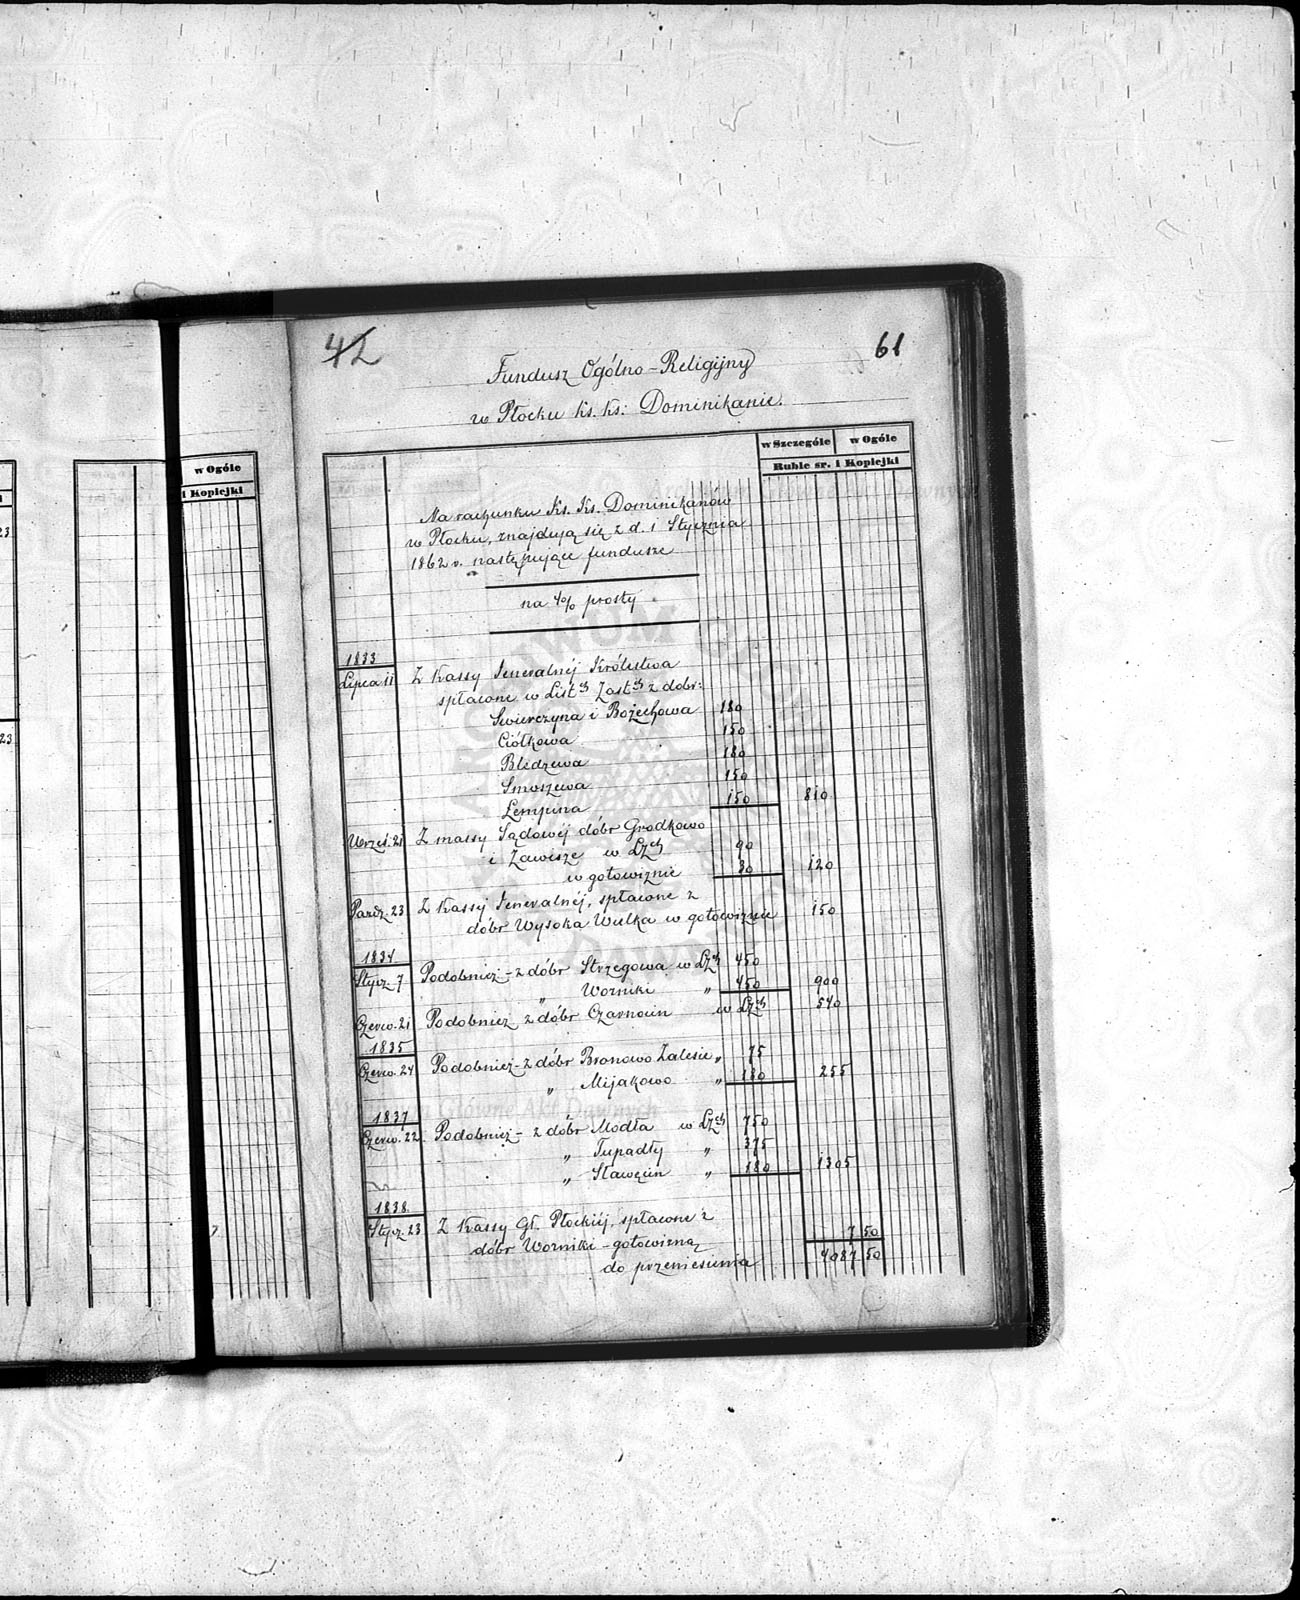 42
61
Fundusz Ogólno-Religijny
w Płocku Ks. Ks: Dominikanie.
w Szczególe w Ogóle
Ruble sr. i Kopiejki
w Ogóle
i Kopiejki
23
23
Na rachunku Ks. Ks. Dominikanów
w Płocku, znajdują się z d. 1 Stycznia
1862 r. następujące fundusze
na 4% prosty
1833
Lipca 11 Z Kassy Jeneralnéj Królestwa
spłacone w List.ch Zast.ch z dobr:
Swierczyna i Bożechowa 180
Ciółkowa 150
Bledzewa 180
Smoszewa 150
Lempina 150 810
Wrześ. 21 Z massy Sądowéj dóbr Grodkowo
i Zawisze w Lzch 90
w gotowiznie 30 120
Paźdz. 23 Z Kassy Jeneralnéj, spłacone z
dóbr Wysoka Wulka w gotowiznie 150
1834
Stycz. 7 Podobnież - z dóbr Strzegowa w Lzch 450
„ Worniki „ 450 900
Czerw. 21 Podobnież z dóbr Czarnocin w Lzch 540
1835
Czerw. 24 Podobnież - z dóbr Bronowo Zalesie „ 75
„ Mijakowo „ 180 255
1837
Czerw. 22 Podobnież - z dóbr Modła w Lzch 750
„ Tupadły „ 375
„ Sławęcin „ 180 1305
1838
Stycz. 23 Z Kassy Gł. Płockiéj, spłacone z
dóbr Worniki - gotowizną 7 50
do przeniesienia 4087 50